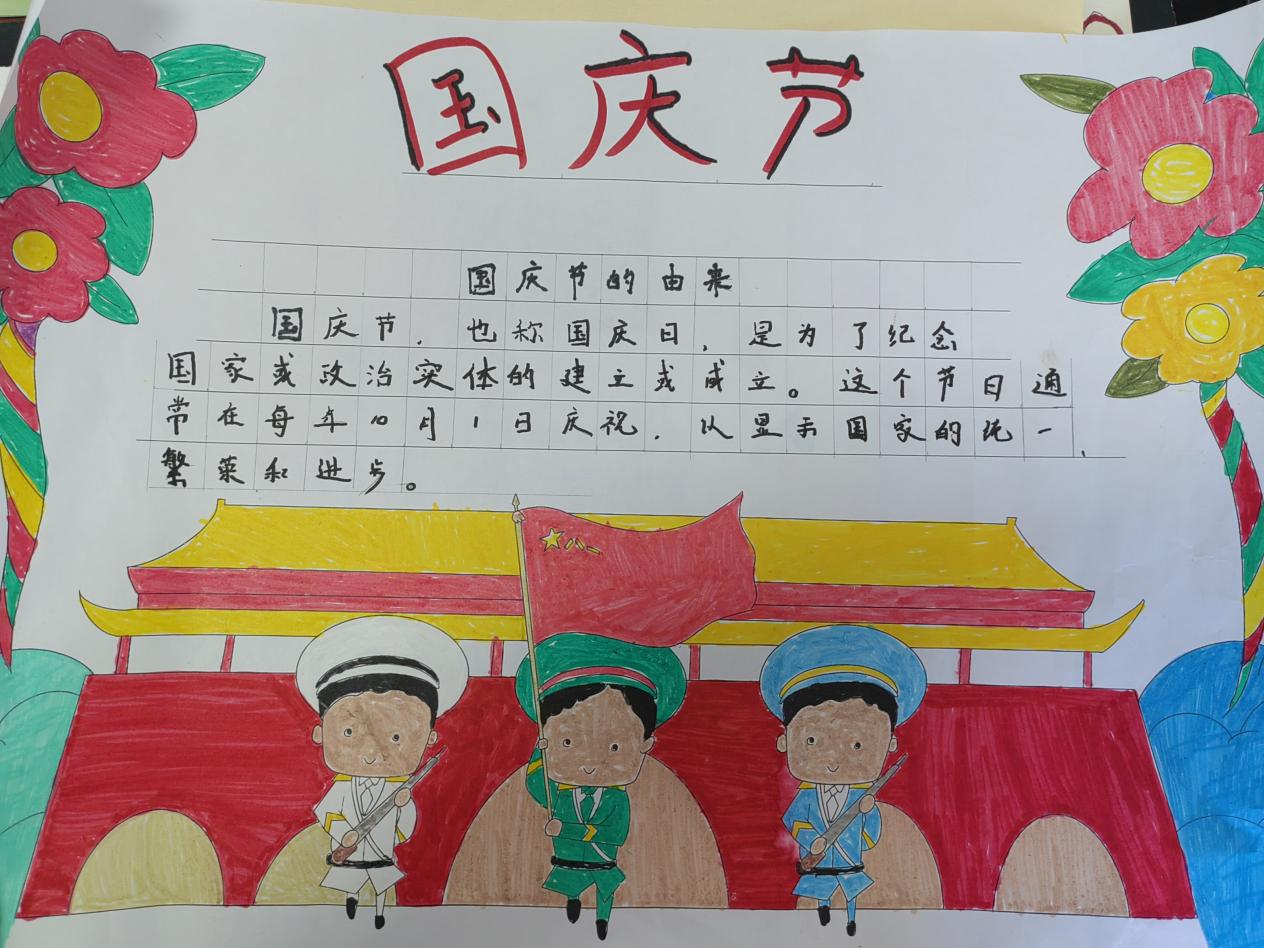 国庆节
国庆节的由来
国庆节，也称国庆日，是为了纪念
国家或政治实体的建立或成立。这个节日通
常在每年10月1日庆祝，以显示国家的统一、
繁荣和进步。
八一